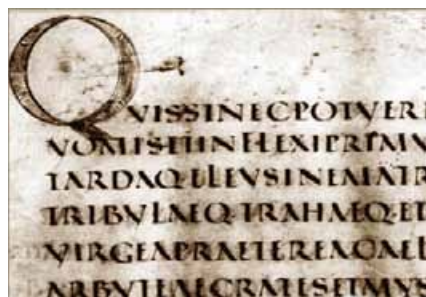 QVISSINECPOTVERE
VOMISETINFLEXIPRIMV
TARDAQ·ELEVSINEMATR
TRIBVLAEQ·TRAHAEQ·ET
VIRGEAPRAETEREACAEL
ARBVTEAECRATESETMVS